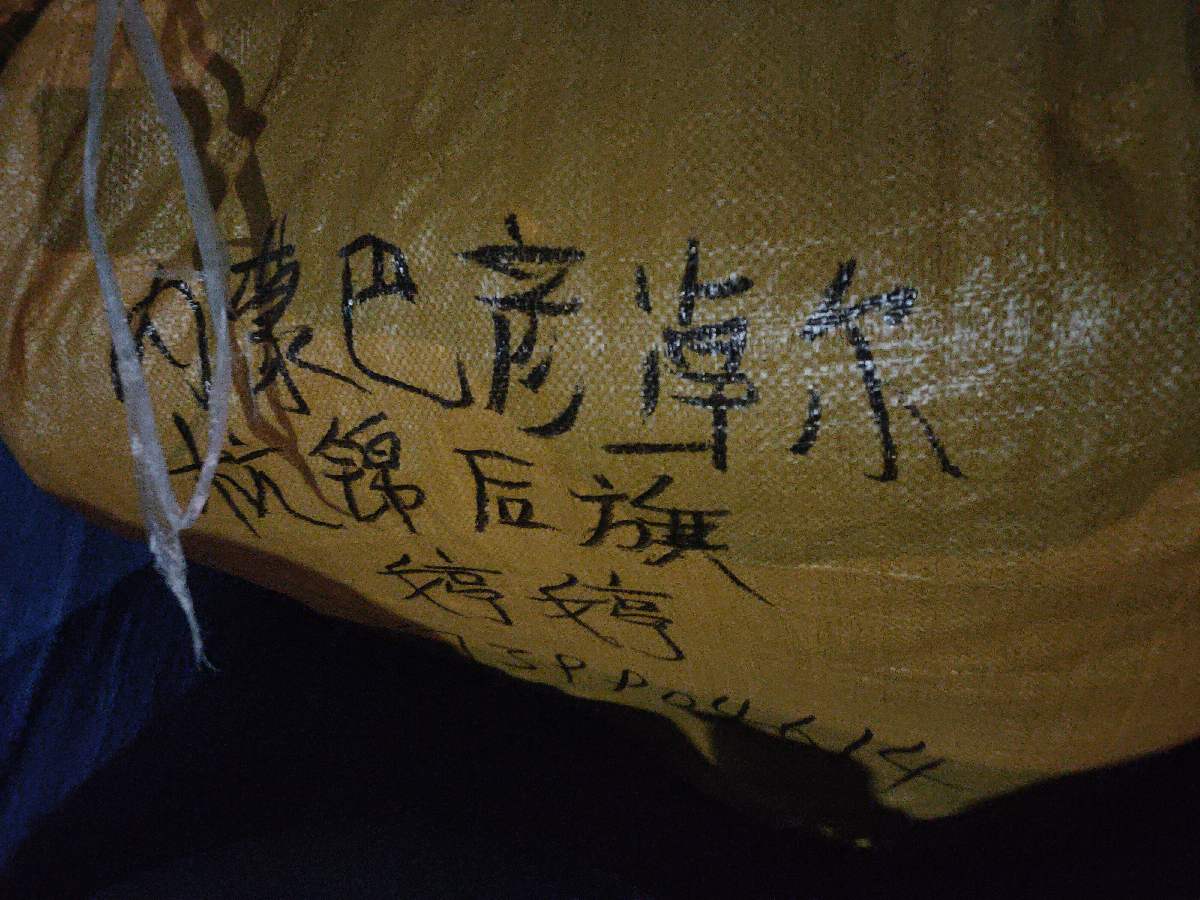 内蒙巴彦淖尔
杭锦后旗
婷婷